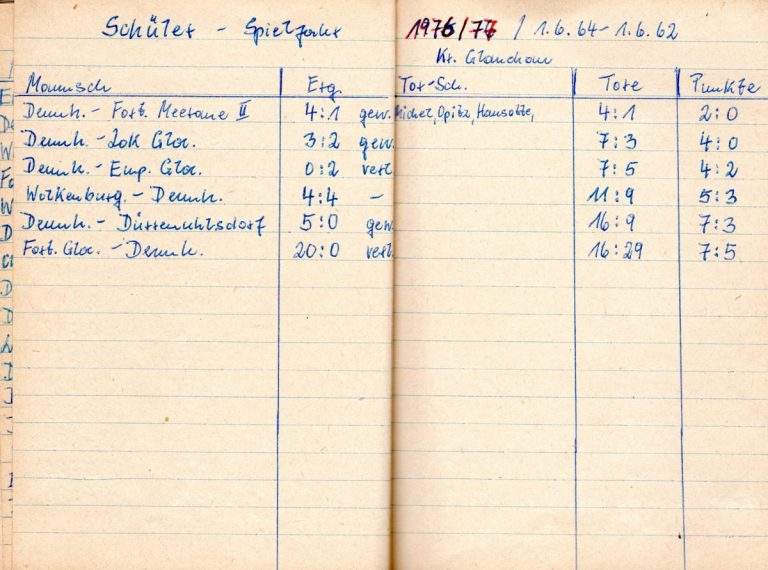 Schüler - Spieljahr 1976/77 / 1.6.64 - 1.6.62
Kr. Glauchau
Mannsch Erg. Tor-Sch. Tore Punkte
Dennh. - Fort. Meerane II 4:1 gew. Michel, Opitz, 4:1 2:0
Dennh. - Lok Glac. 3:2 gew. 7:3 4:0
Dennh. - Emp. Glac. 0:2 verl. 7:5 4:2
Wolkenburg. - Dennh. 4:4 - 11:9 5:3
Dennh. - Dürrenuhlsdorf 5:0 gew. 16:9 7:3
Fort. Glac. - Dennh. 20:0 verl. 16:29 7:5